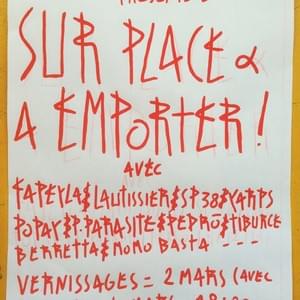 SUR PLACE &
A EMPORTER !
AVEC
TAPEYLA & LAUTISSIER & SP 38 & YARPS
POPAY & P. PARASITE & PEDRÔ & TIBURCE
BERRETTA & MOMO BASTA - - -
VERNISSAGES = 2 MARS (AVEC